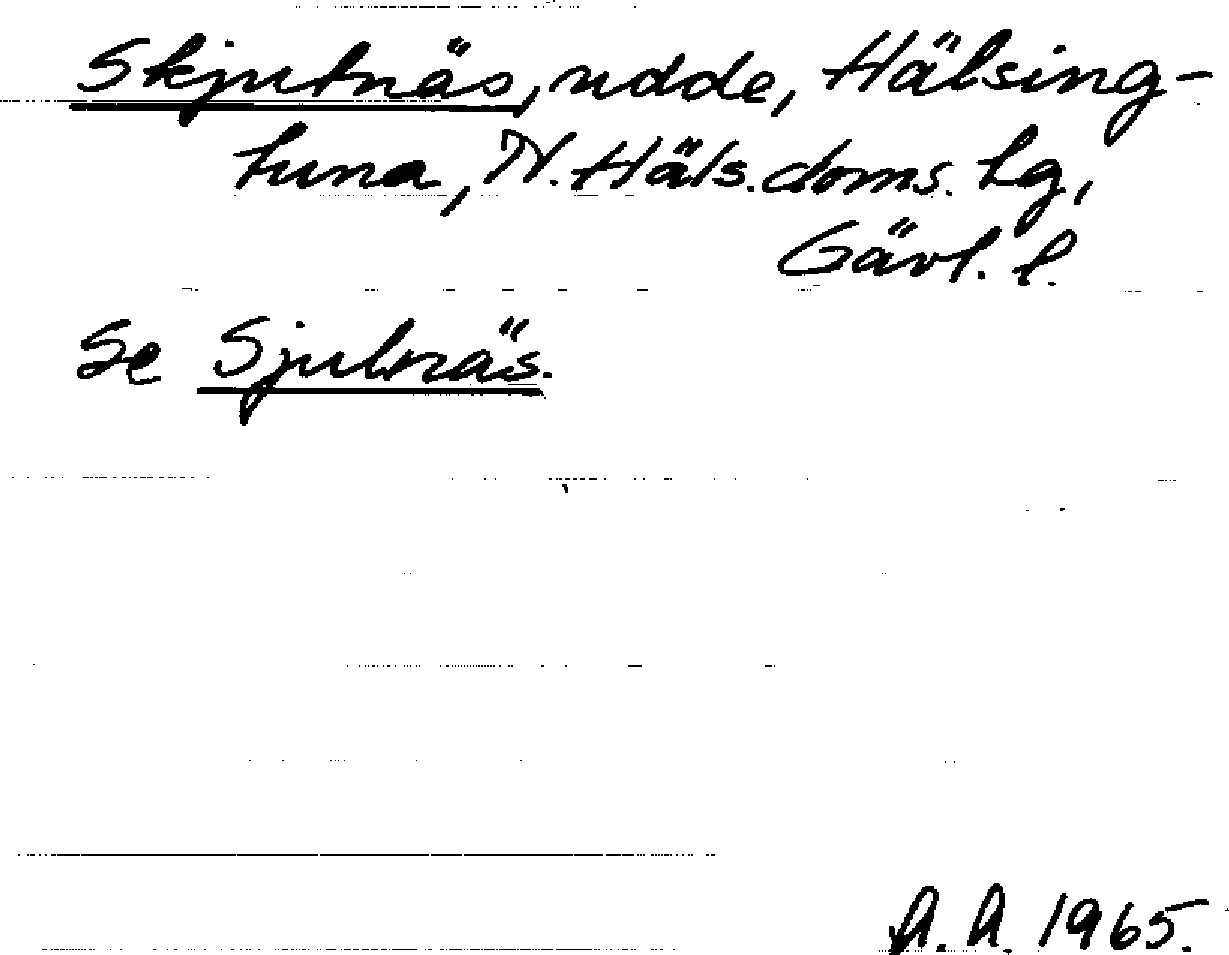 Skjutnäs, udde, Hälsing-
tuna, N. Häls. doms. tg,
Gävl. l.
Se Sjulnäs.
A. A. 1965.